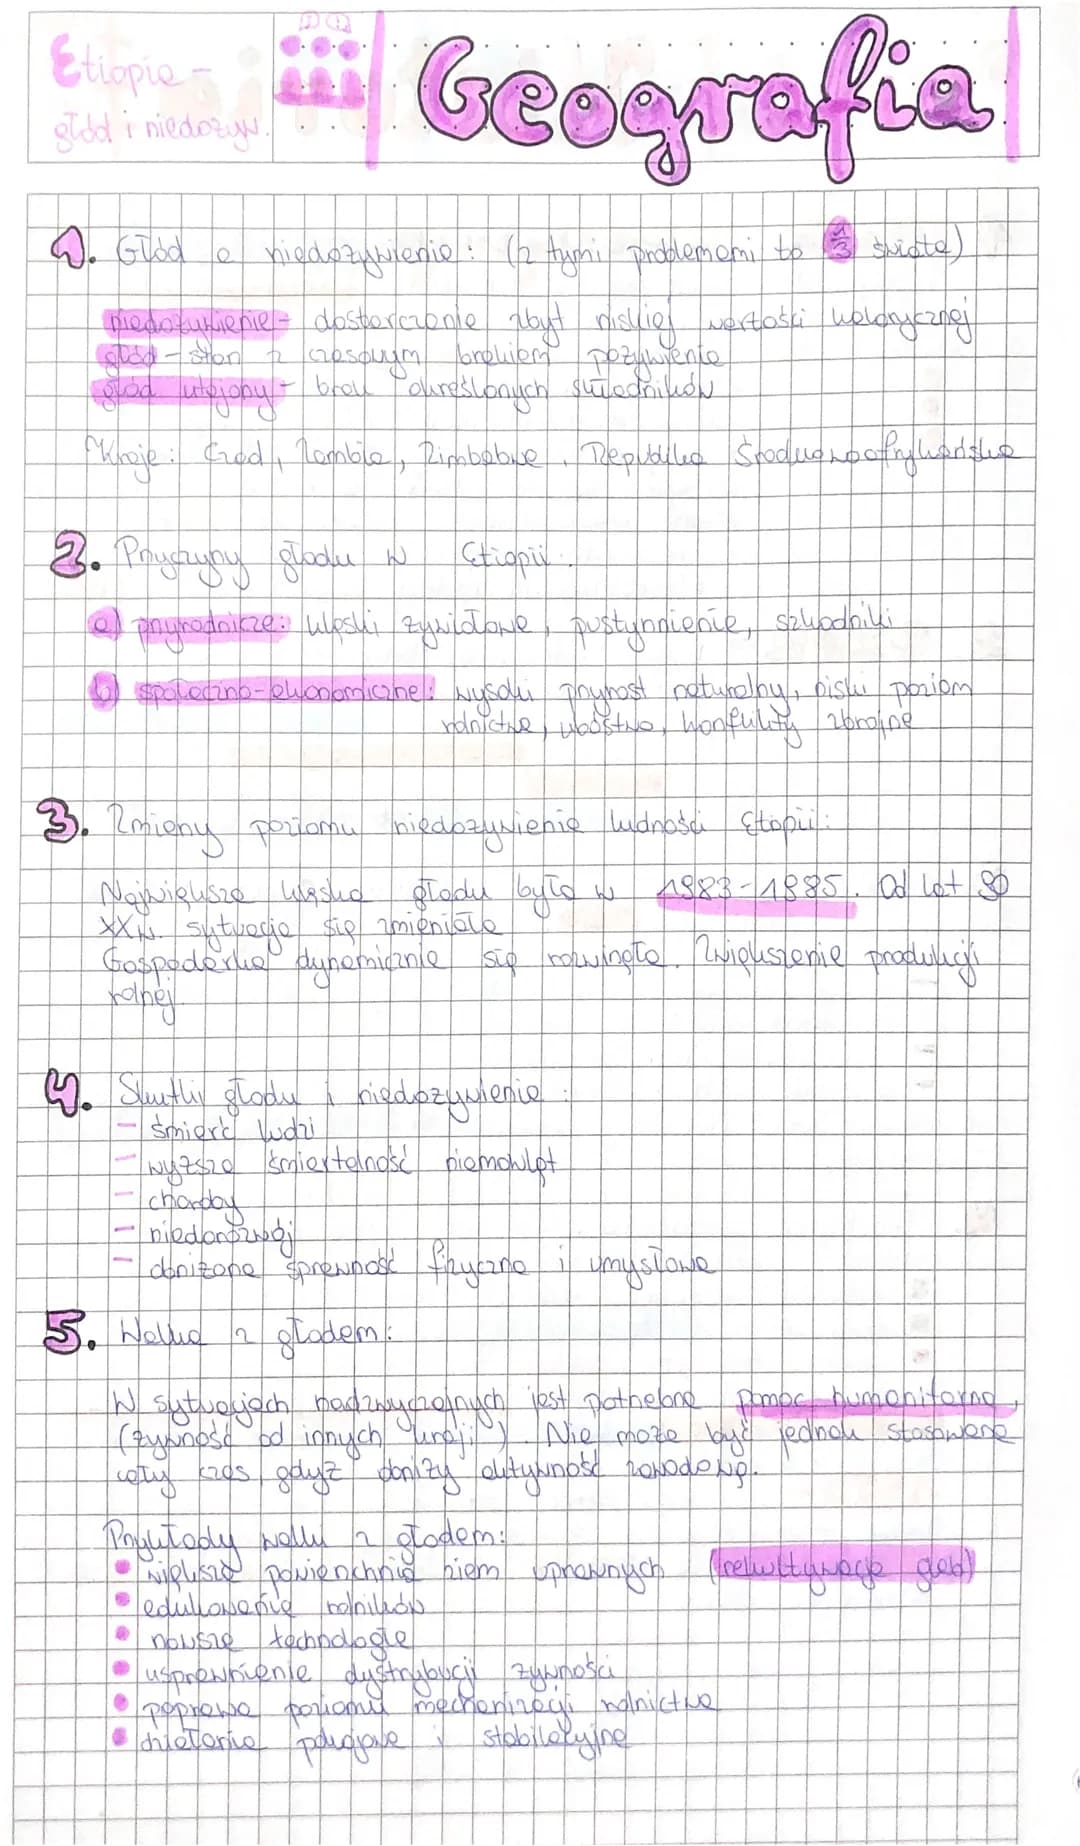 Etiopia -
głód i niedożyw.
Geografia
1. Głód a niedożywienie: (z tymi problemami to 1/3 świata)
niedożywienie - dostarczanie zbyt niskiej wartości kalorycznej
głód - stan z czasowym brakiem pożywienia
głód utajony - brak określonych składników
Kraje: Czad, Zambia, Zimbabwe, Republika Środkowoafrykańska
2. Przyczyny głodu w Etiopii:
a) przyrodnicze: klęski żywiołowe, pustynnienie, szkodniki
b) społeczno-ekonomiczne: wysoki przyrost naturalny, niski poziom
rolnictwa, ubóstwo, konflikty zbrojne
3. Zmiany poziomu niedożywienia ludności Etopii:
Największa klęska głodu była w 1983-1985. Od lat 90
XXw. sytuacja się zmieniała
Gospodarka dynamicznie się rozwinęła. Zwiększenie produkcji
rolnej.
4. Skutki głodu i niedożywienia:
- śmierć ludzi
- wyższa śmiertelność niemowląt
- choroby
- niedorozwój
- obniżona sprawność fizyczna i umysłowa
5. Walka z głodem:
W sytuacjach nadzwyczajnych jest potrzebna pomoc humanitarna,
(żywność od innych kraji). Nie może być jednak stosowana
cały czas, gdyż obniży aktywność zawodową.
Przykłady walki z głodem:
• większa powierzchnia ziem uprawnych (rekultywacja gleb)
• edukowanie rolników
• nowsze technologie
• usprawnienie dystrybucji żywności
• poprawa poziomu mechanizacji rolnictwa
• działania pokojowe i stabilacyjne